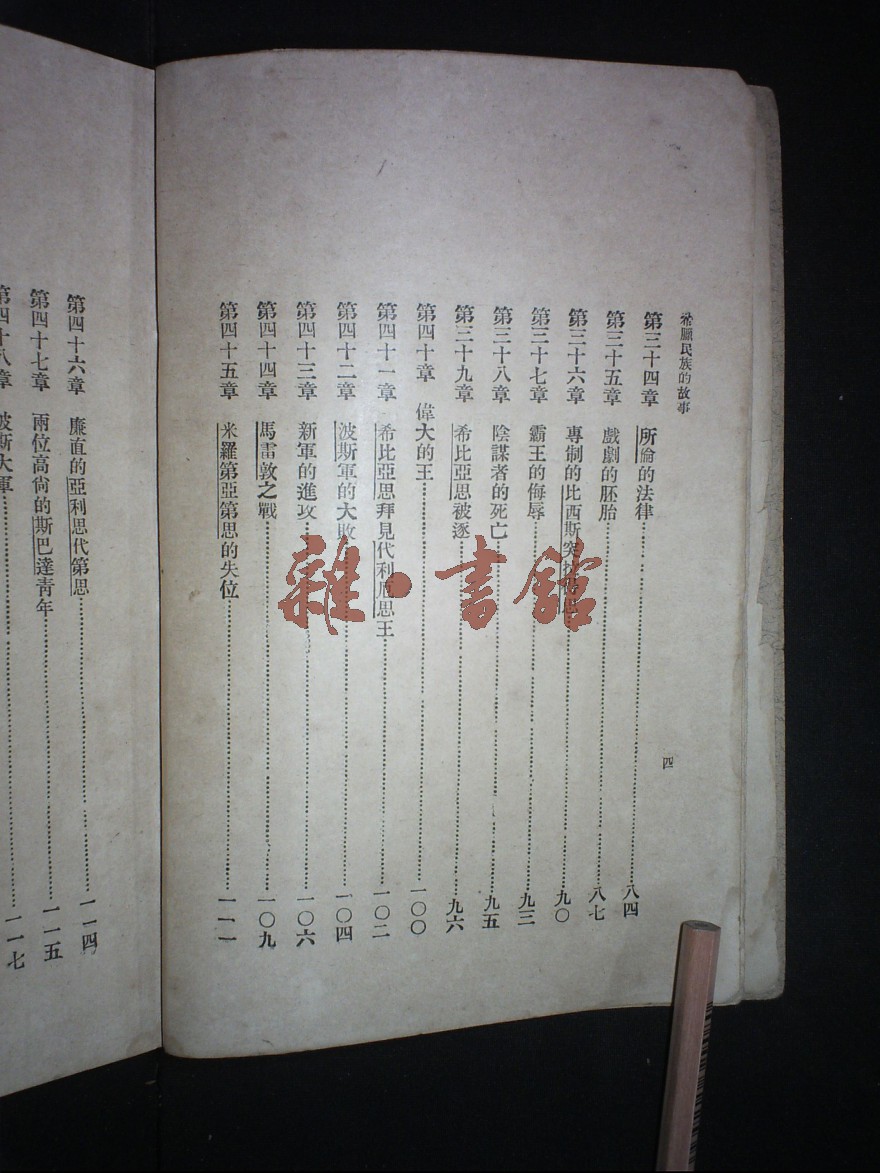 希臘民族的故事
四
第三十四章 所倫的法律……八四
第三十五章 戲劇的胚胎……八七
第三十六章 專制的比西斯突……九〇
第三十七章 霸王的侮辱……九三
第三十八章 陰謀者的死亡……九五
第三十九章 希比亞思被逐……九六
第四十章 偉大的王……一〇〇
第四十一章 希比亞思拜見代利厄思王……一〇二
第四十二章 波斯軍的大敗……一〇四
第四十三章 新軍的進攻……一〇六
第四十四章 馬雷敦之戰……一〇九
第四十五章 米羅第亞第思的失位……一一一
第四十六章 廉直的亞利思代第思……一一四
第四十七章 兩位高尚的斯巴達青年……一一五
第四十八章 波斯大軍……一一七
雜·書館